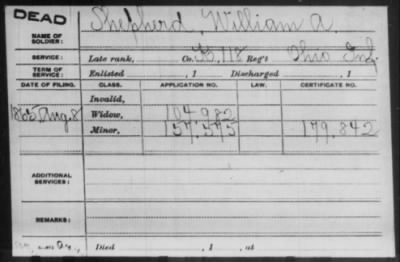 DEAD
NAME OF SOLDIER: Shepherd, William A.
SERVICE: Late rank, Co. 118 Reg't Ohio Inf.
TERM OF SERVICE: Enlisted , 1 Discharged , 1
DATE OF FILING. CLASS. APPLICATION NO. LAW. CERTIFICATE NO.
Invalid,
1865 Aug. 8 Widow, 104.982
Minor, 157.575 179.842
ADDITIONAL SERVICES:
REMARKS:
Died , 1 , at